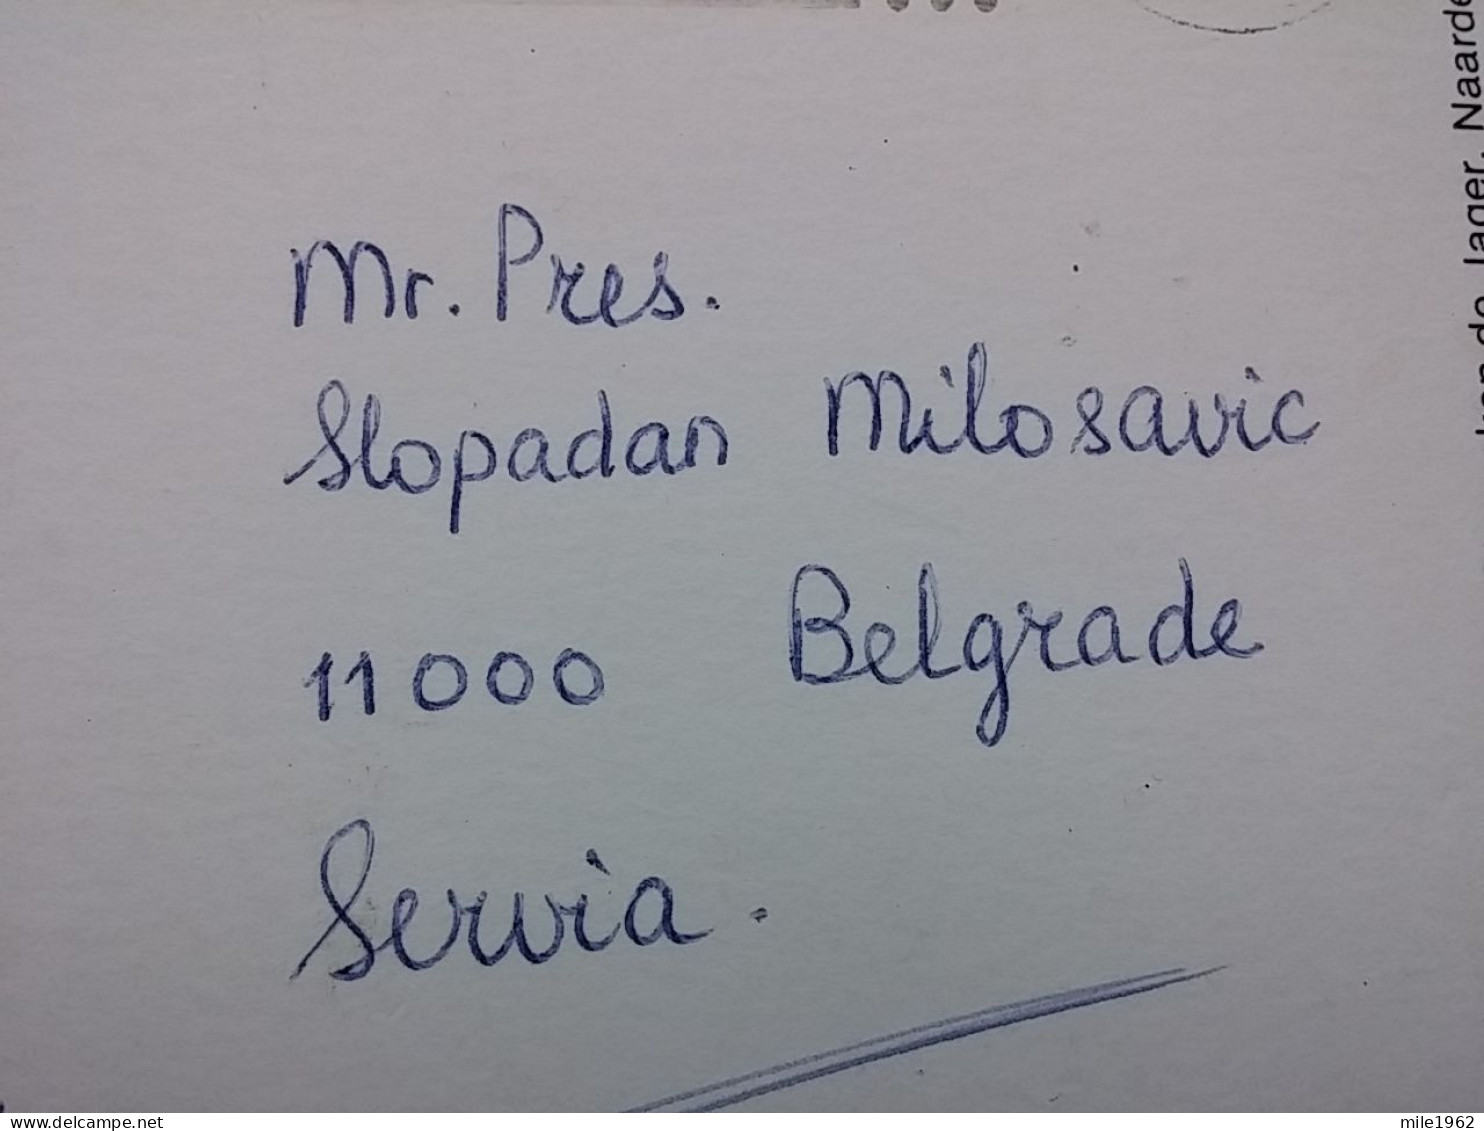 Mr. Pres.
Slopadan Milosavic
11000 Belgrade
Servia.
de Jager, Naarde
delcampe.net
mile1962